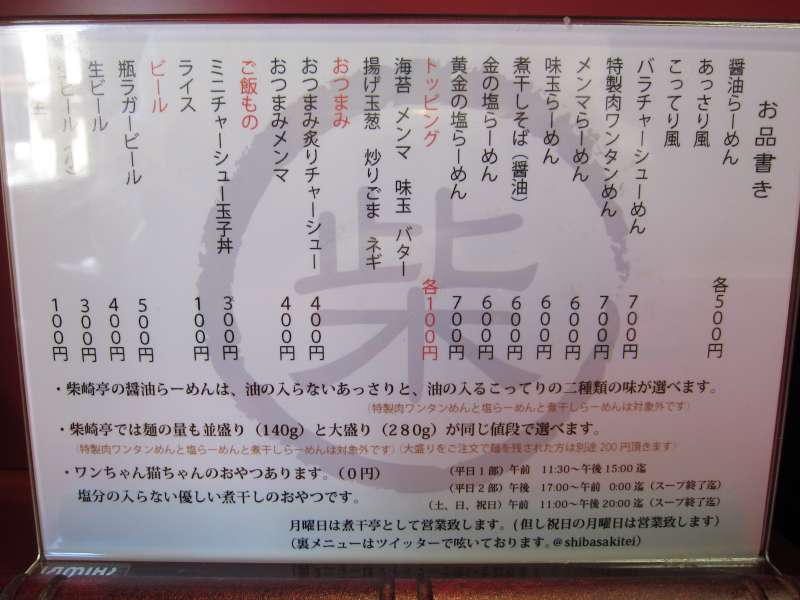 お品書き
醤油らーめん
あっさり風
こってり風
各500円
バラチャーシューめん 700円
特製肉ワンタンめん 700円
メンマらーめん 600円
味玉らーめん 600円
煮干しそば（醤油） 600円
金の塩らーめん 600円
黄金の塩らーめん 700円
トッピング 各100円
海苔 メンマ 味玉 バター
揚げ玉葱 炒りごま ネギ
おつまみ
おつまみ炙りチャーシュー 400円
おつまみメンマ 400円
ご飯もの
ミニチャーシュー玉子丼 300円
ライス 100円
ビール
瓶ラガービール 500円
生ビール 400円
生ビール（小） 300円
100円
柴
・柴崎亭の醤油らーめんは、油の入らないあっさりと、油の入るこってりの二種類の味が選べます。
（特製肉ワンタンめんと塩らーめんと煮干しらーめんは対象外です）
・柴崎亭では麺の量も並盛り（140g）と大盛り（280g）が同じ値段で選べます。
（特製肉ワンタンめんと塩らーめんと煮干しらーめんは対象外です）（大盛りをご注文で麺を残された方は別途200円頂きます）
・ワンちゃん猫ちゃんのおやつあります。（0円）
塩分の入らない優しい煮干しのおやつです。
（平日1部）午前 11:30～午後15:00迄
（平日2部）午後 17:00～午前 0:00迄（スープ終了迄）
（土、日、祝日）午前 11:00～午後20:00迄（スープ終了迄）
月曜日は煮干亭として営業致します。（但し祝日の月曜日は営業致します）
（裏メニューはツイッターで呟いております。@shibasakitei）